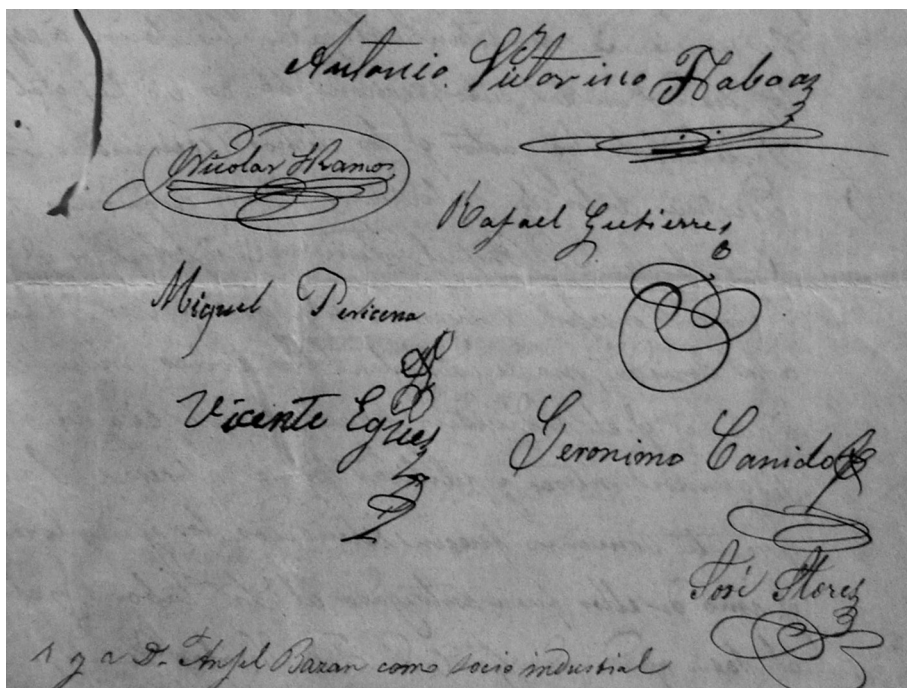 Antonio Victorino Taboas
Nicolas H Ramos
Rafael Gutierres
Miguel Pericena
Vicente Egues
Geronimo Canido
José Flores
y a Dn Anjel Bazan como socio industrial